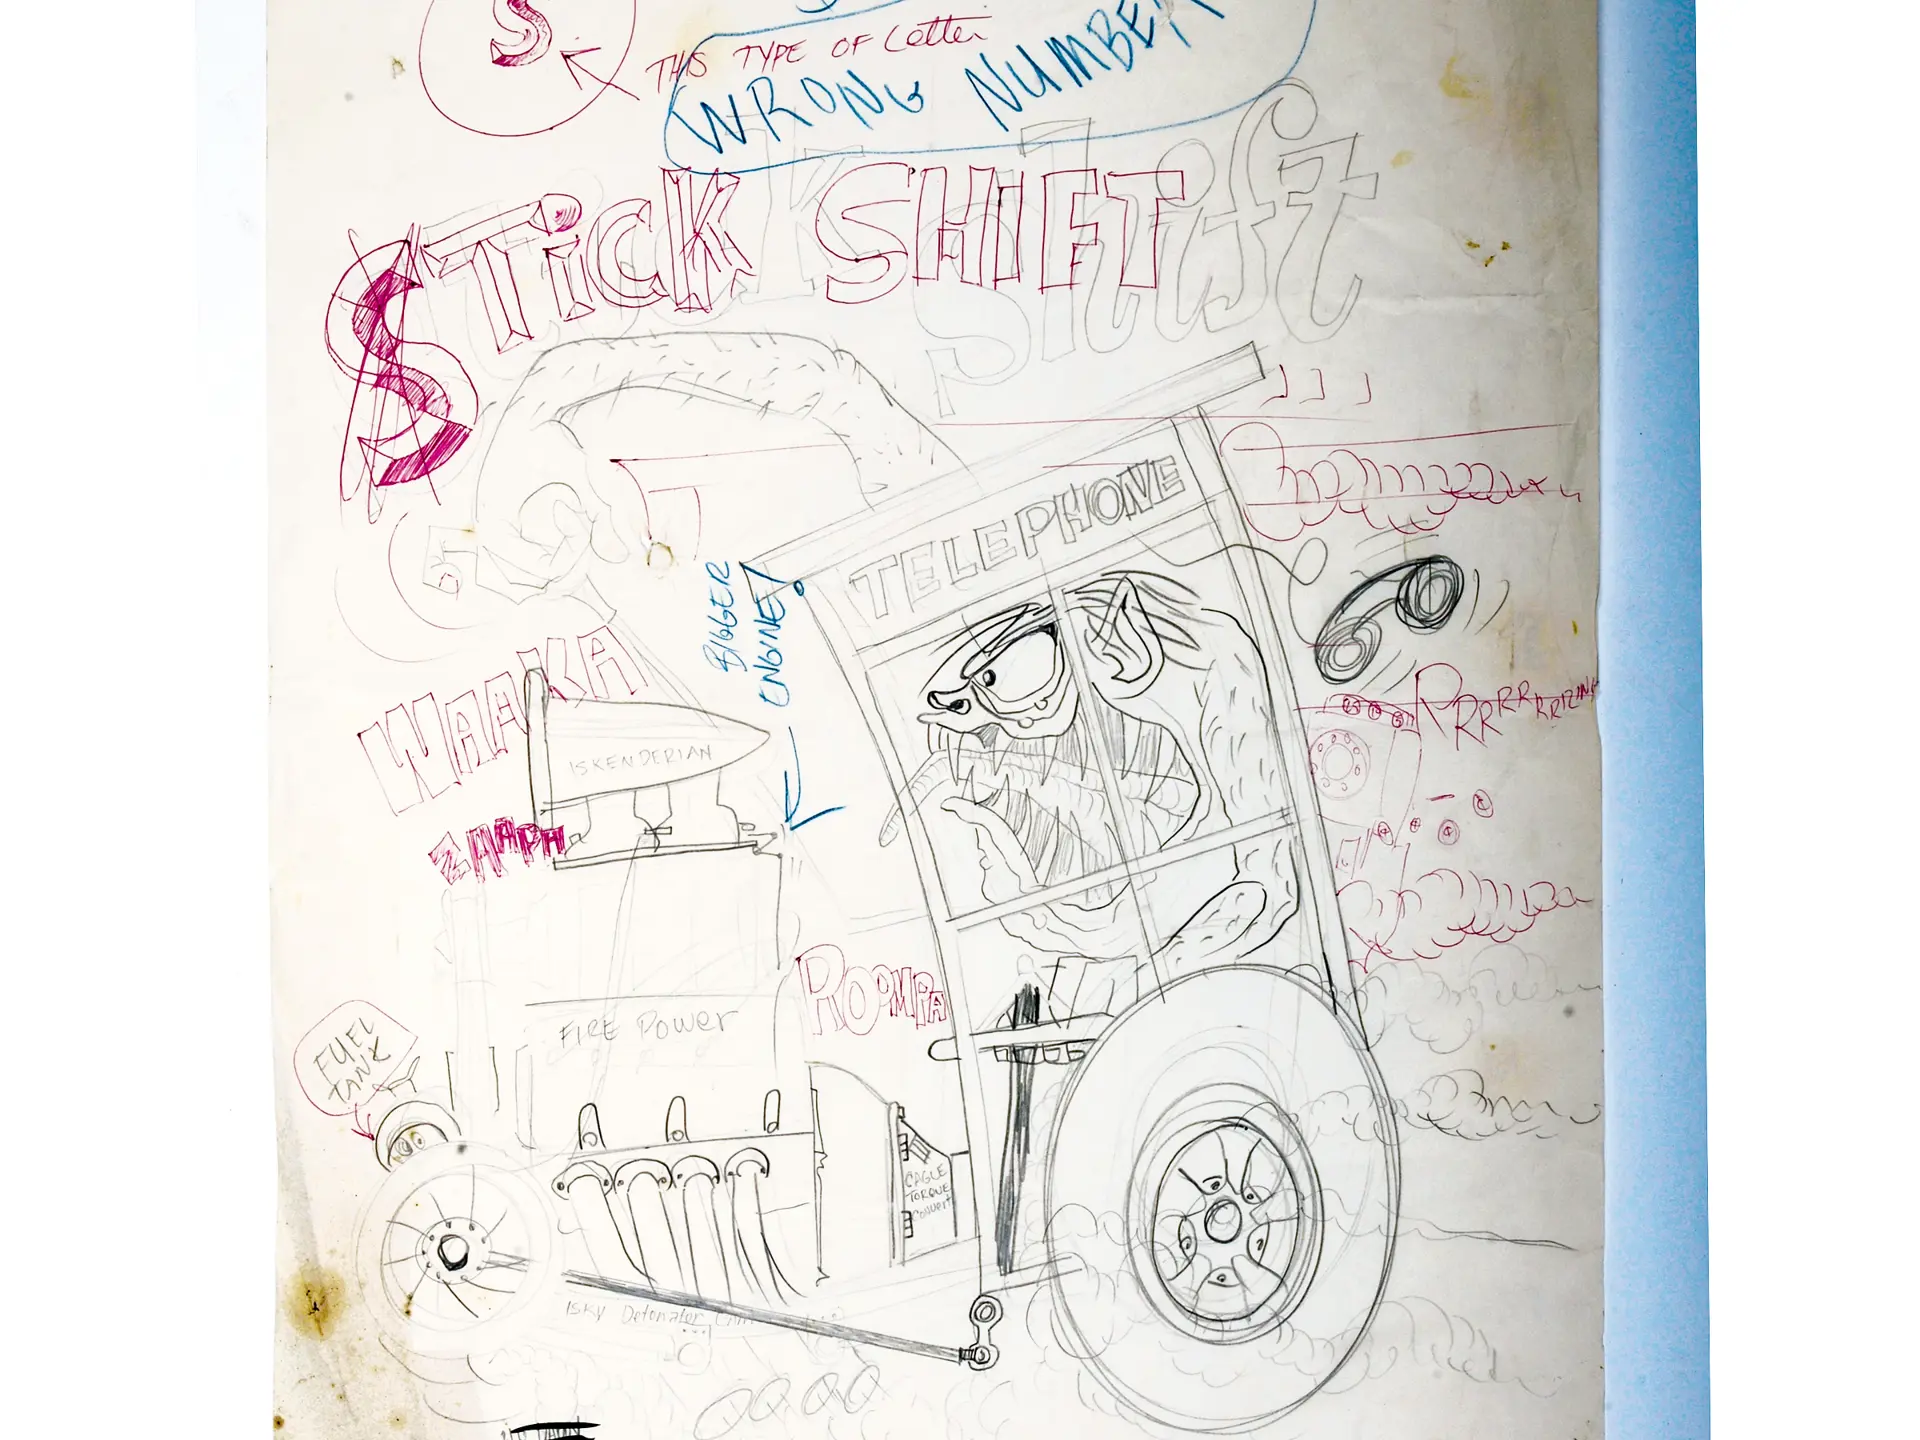 S
THIS TYPE OF Letter
WRONG NUMBER
STiCK SHIFT
Shift
S
TELEPHONE
BIGGER
ENGINE
WAAKA
ISKENDERIAN
RRRRRRRRING
ZAAPH
ROOMPA
FIRE Power
FUEL
TANK
CAGLE
TORQUE
CONVERT
ISKY Detonater Cam